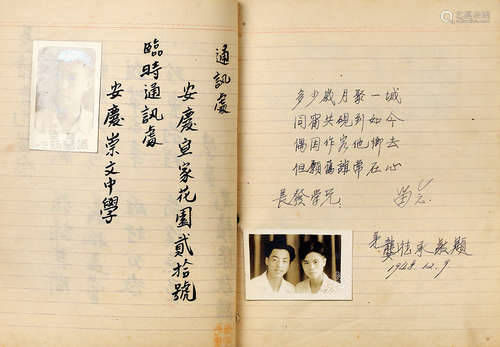 通訊處
安慶皇家花園貳拾號
臨時通訊處
安慶崇文中學
多少歲月聚一城
同窗共硯到如今
偶因作客他鄉去
但願舊誼常在心
長發學兄
留念
弟
龔信承敬題
1948.12.9.